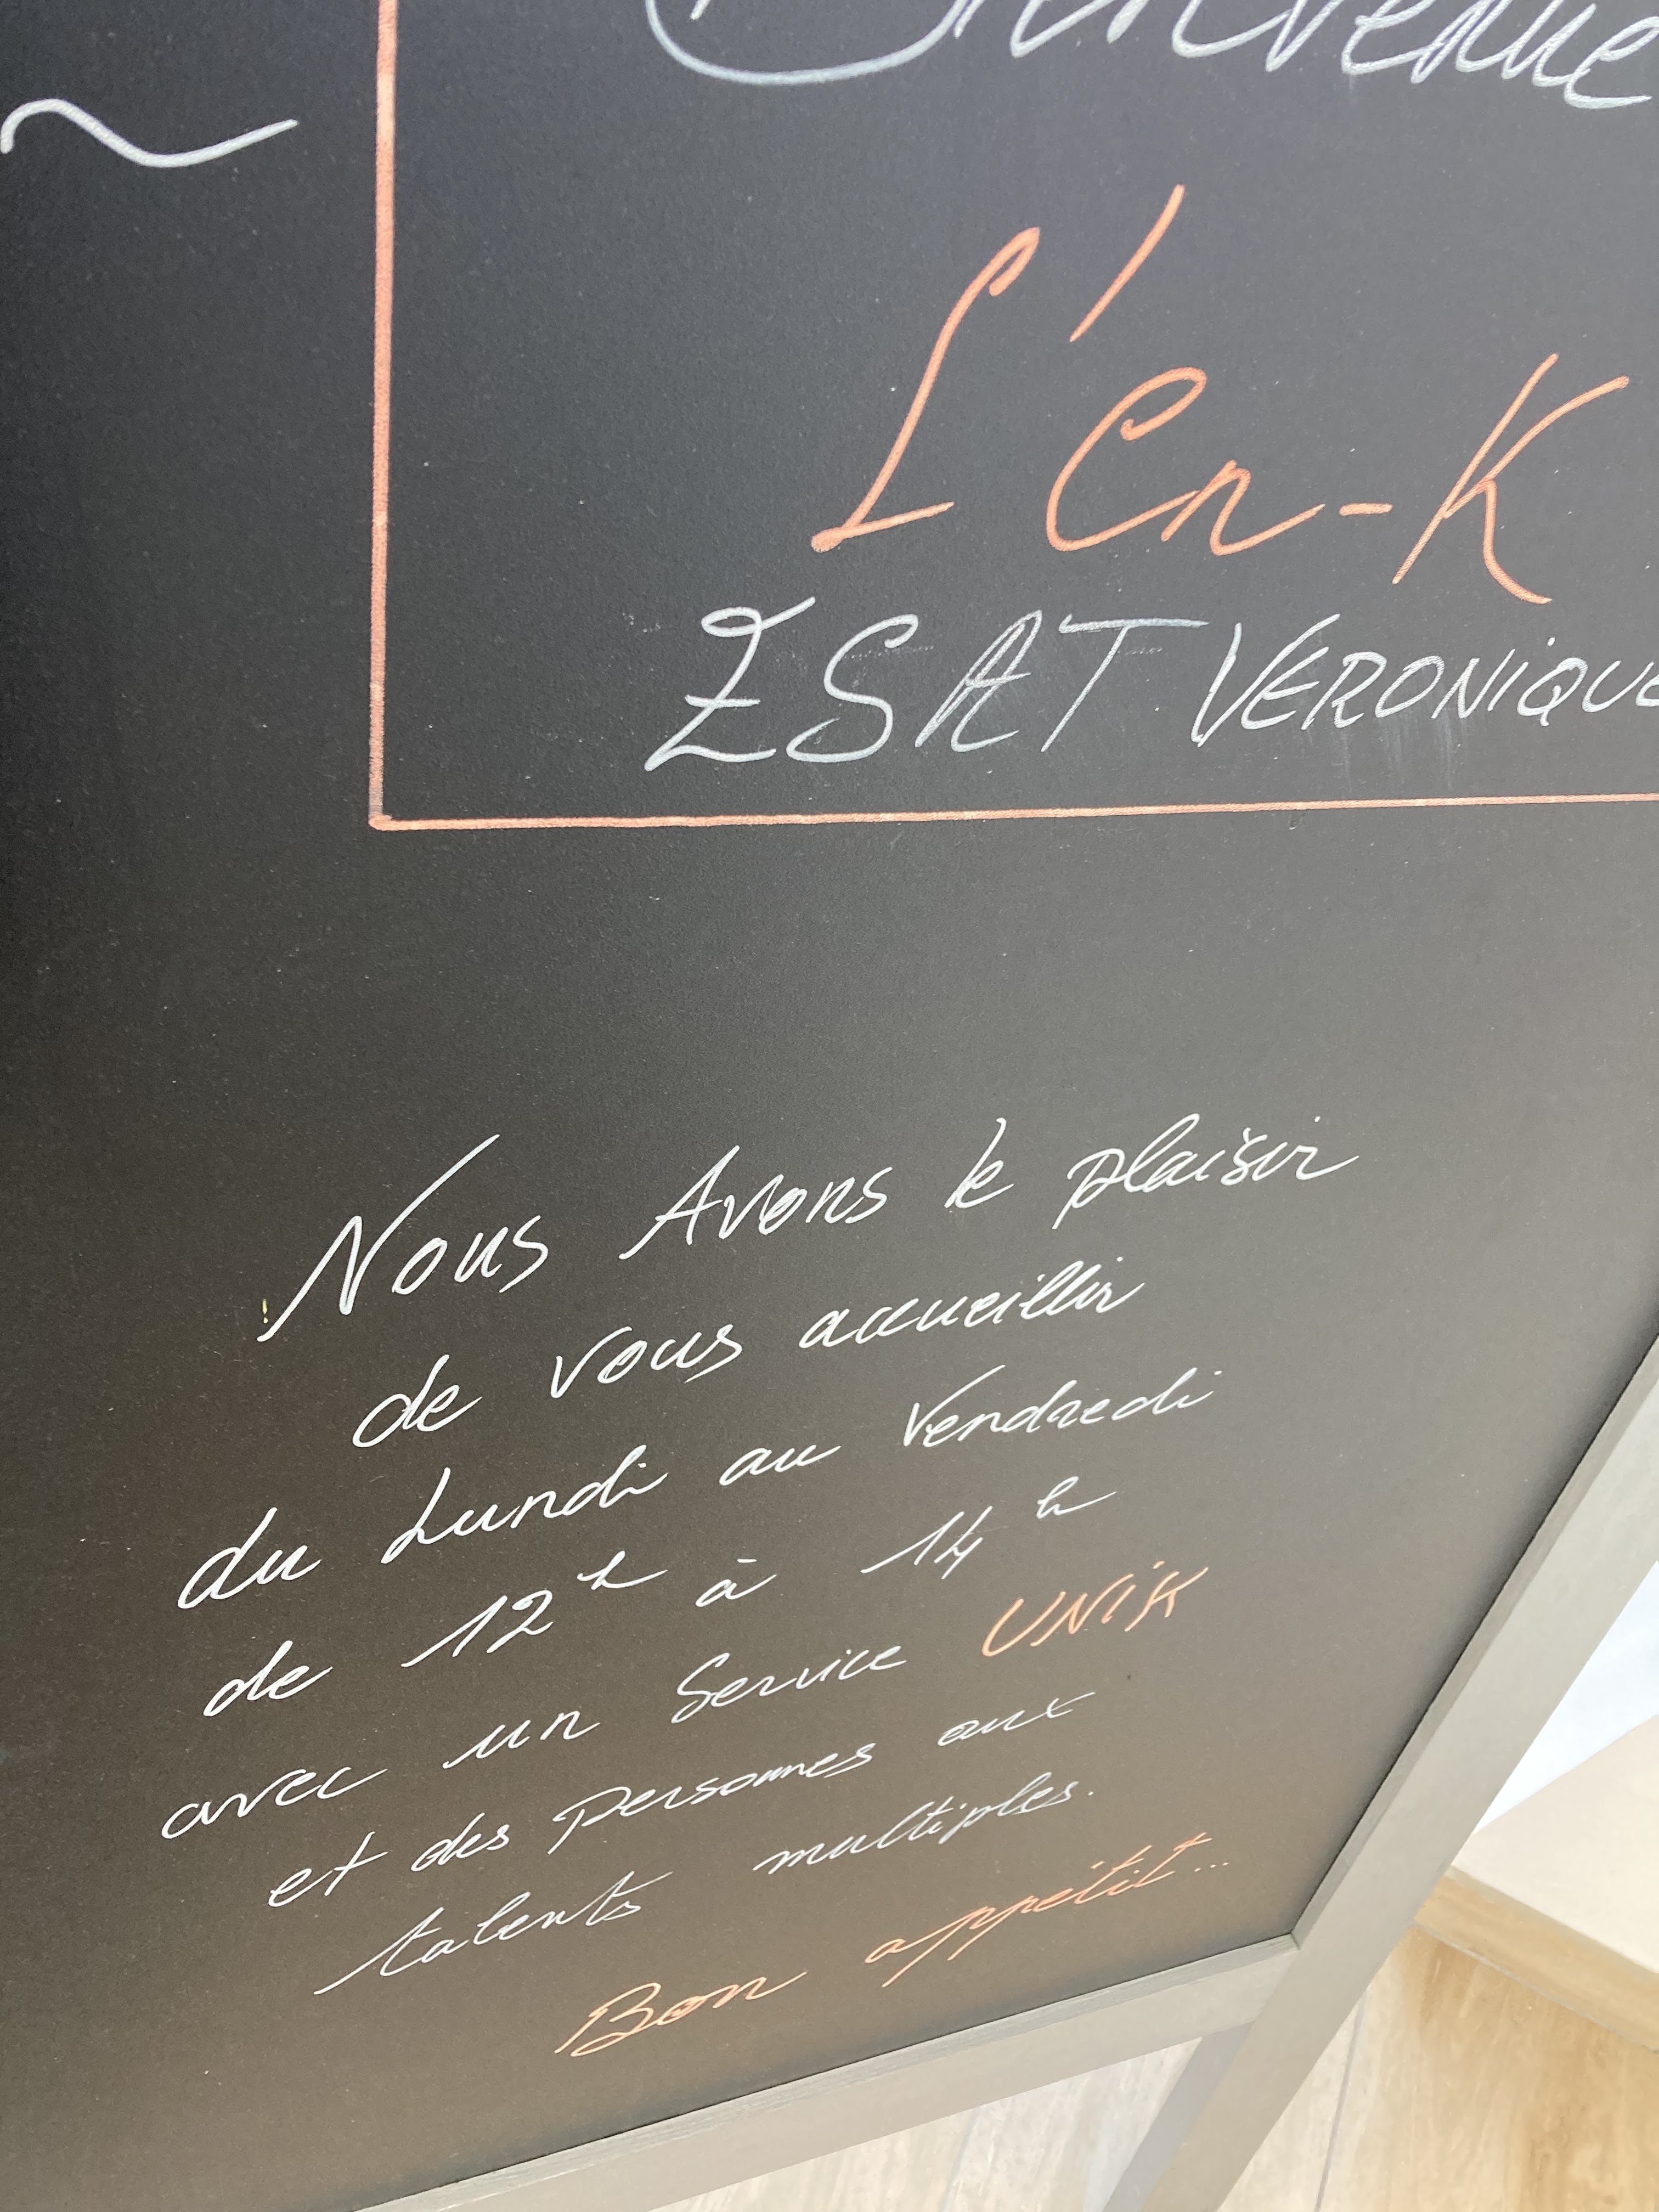 Bienvenue
L'En-K
ESAT VERONIQUE
Nous Avons le plaisir
de vous accueillir
du Lundi au Vendredi
de 12h à 14h
avec un Service UNiK
et des personnes aux
talents multiples.
Bon appétit...